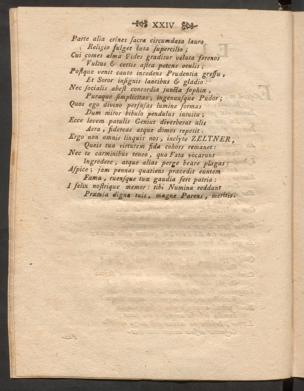 XXIV
Parte alia crines sacra circumdata lauro
Religio fulget tuta supercilio;
Cui comes alma Fides graditur velata serenos
Vultus & certis astra petens oculis;
Postque venit tacito incedens Prudentia gressu,
Et Soror insignis lancibus & gladio.
Nec socialis abest concordia juncta sophiæ,
Puraque simplicitas, ingenuusque Pudor;
Quos ego divino perfusas lumine formas
Dum miror bibulo pendulus intuitu;
Ecce levem patulis Genius diverberat alis
Aera, sidereas atque dimos repetit.
Ergo non omnis linquit nos, inclyte ZELTNER,
Quasi tua virtutem fida cohors remanet:
Nec te carminibus teneo, qua Fata vocarunt
Ingredere, atque alias perge beare plagas;
Aspice; jam pennas quatiens præcedit euntem
Fama, tuensque tua gaudia fert patria:
I felix nostrique memor: tibi Numina reddant
Præmia digna tuis, magne Parens, meritis.